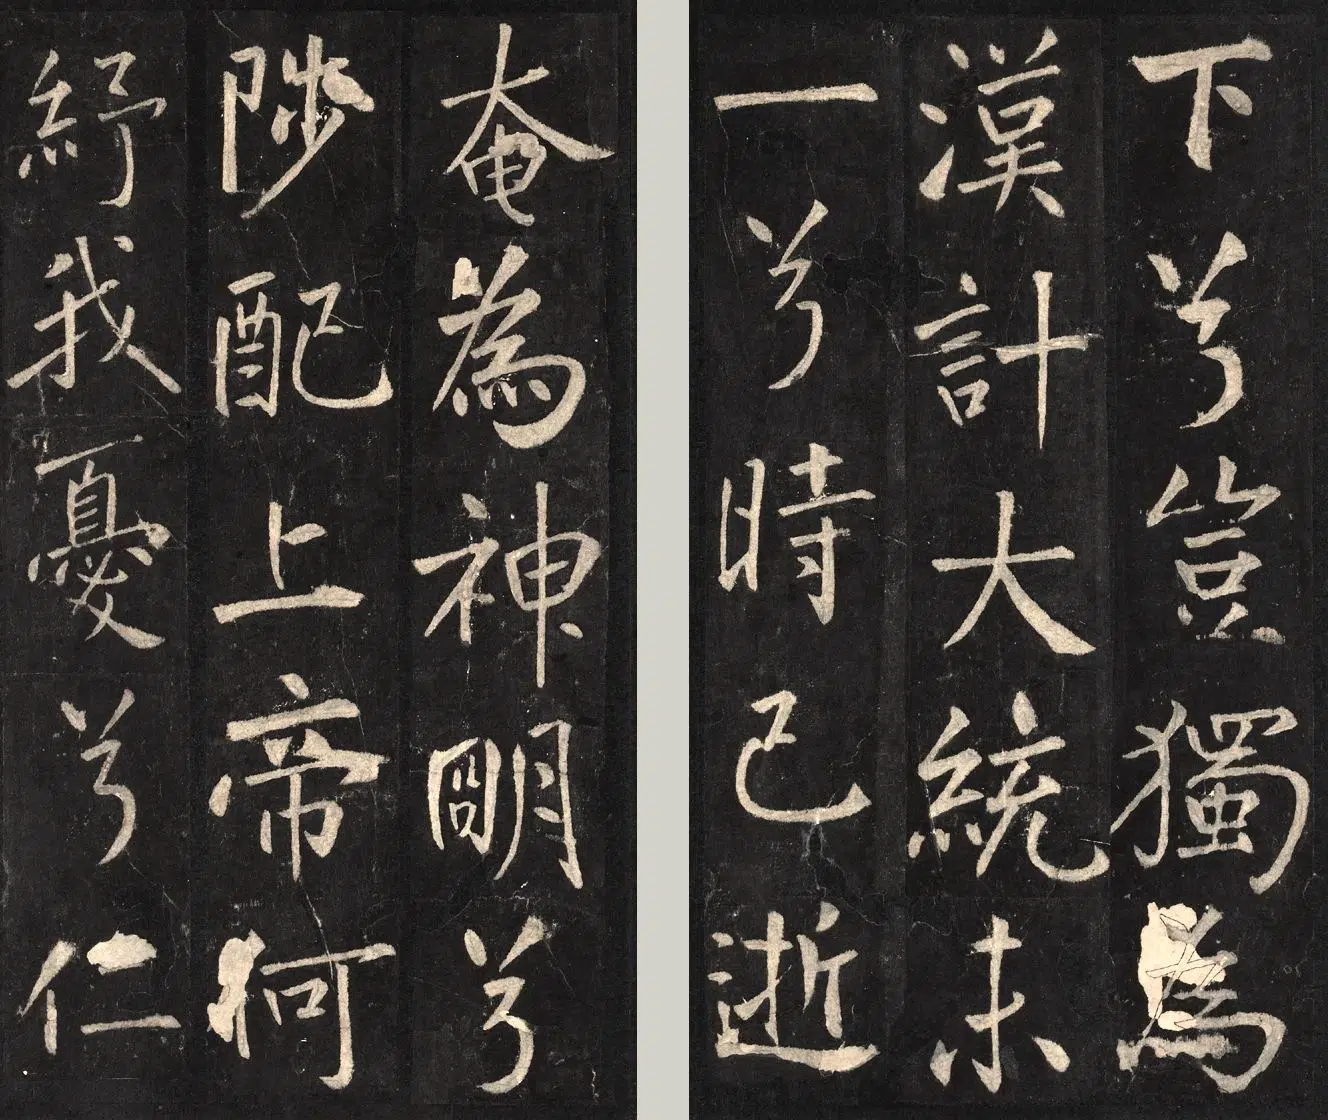 下兮豈獨為
漢計大統未
一兮時已逝
奄為神明兮
陟配上帝何
紓我憂兮仁